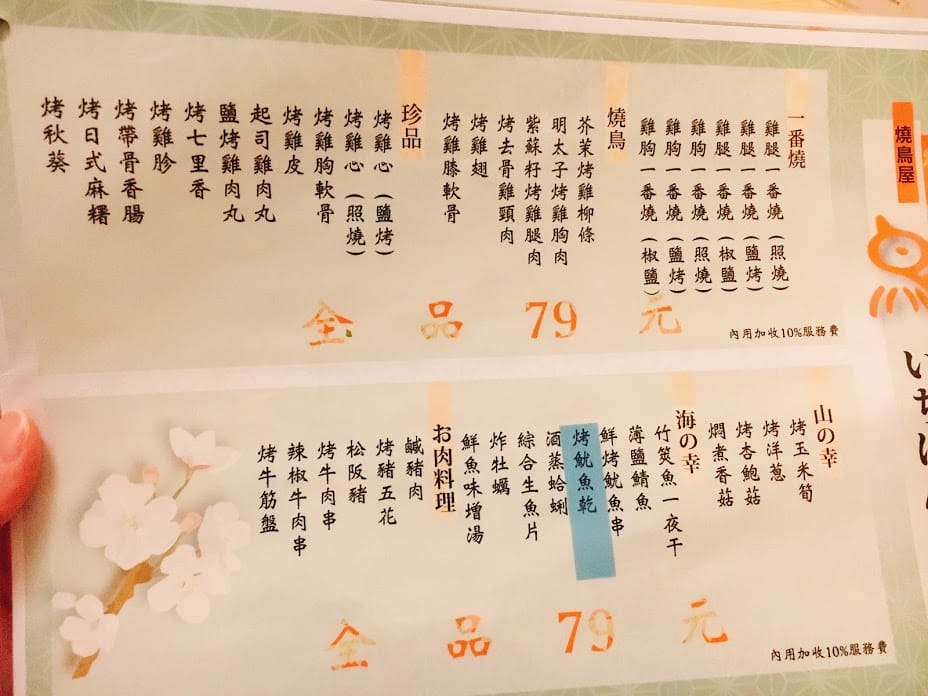 一番燒
雞腿一番燒（照燒）
雞腿一番燒（鹽烤）
雞腿一番燒（椒鹽）
雞胸一番燒（照燒）
雞胸一番燒（鹽烤）
雞胸一番燒（椒鹽）
燒鳥
芥茉烤雞柳條
明太子烤雞胸肉
紫蘇籽烤雞腿肉
烤去骨雞頸肉
烤雞翅
烤雞膝軟骨
珍品
烤雞心（鹽烤）
烤雞心（照燒）
烤雞胸軟骨
烤雞皮
起司雞肉丸
鹽烤雞肉丸
烤七里香
烤雞胗
烤帶骨香腸
烤日式麻糬
烤秋葵
全品79元
內用加收10%服務費
山の幸
烤玉米筍
烤洋蔥
烤杏鮑菇
燜煮香菇
海の幸
竹筴魚一夜干
薄鹽鯖魚
鮮烤魷魚串
烤魷魚乾
酒蒸蛤蜊
綜合生魚片
炸牡蠣
鮮魚味增湯
お肉料理
鹹豬肉
烤豬五花
松阪豬
烤牛肉串
辣椒牛肉串
烤牛筋盤
全品79元
內用加收10%服務費
燒鳥屋